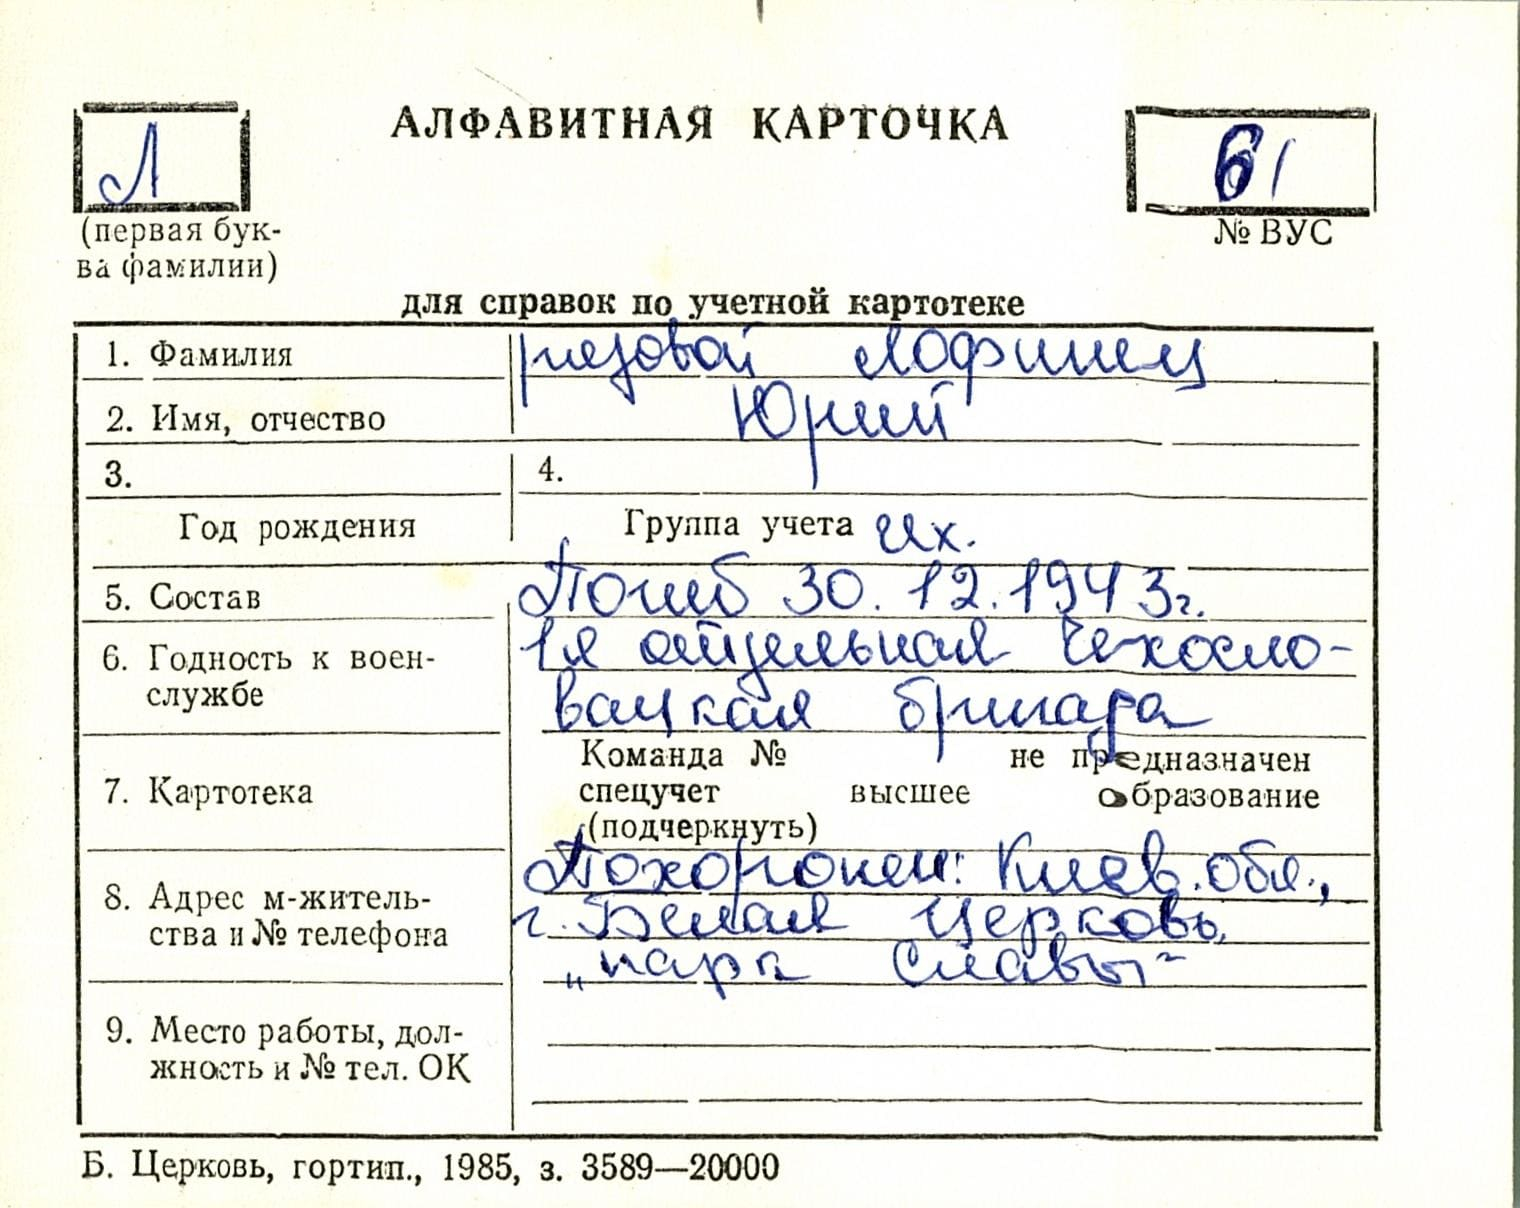 АЛФАВИТНАЯ КАРТОЧКА
Л
61
(первая бук-
ва фамилии)
№ ВУС
для справок по учетной картотеке
1. Фамилия рядовой Лофинец
2. Имя, отчество Юрий
3. 4.
Год рождения Группа учета
5. Состав Погиб 30.12.1943г.
6. Годность к воен- 1я отдельная Чехосло-
службе вацкая бригада
7. Картотека
Команда № не предназначен
спецучет высшее образование
(подчеркнуть)
8. Адрес м-житель-
ства и № телефона
Похоронен: Киев. обл.,
г. Белая Церковь,
„парк Славы"
9. Место работы, дол-
жность и № тел. ОК
Б. Церковь, гортип., 1985, з. 3589—20000